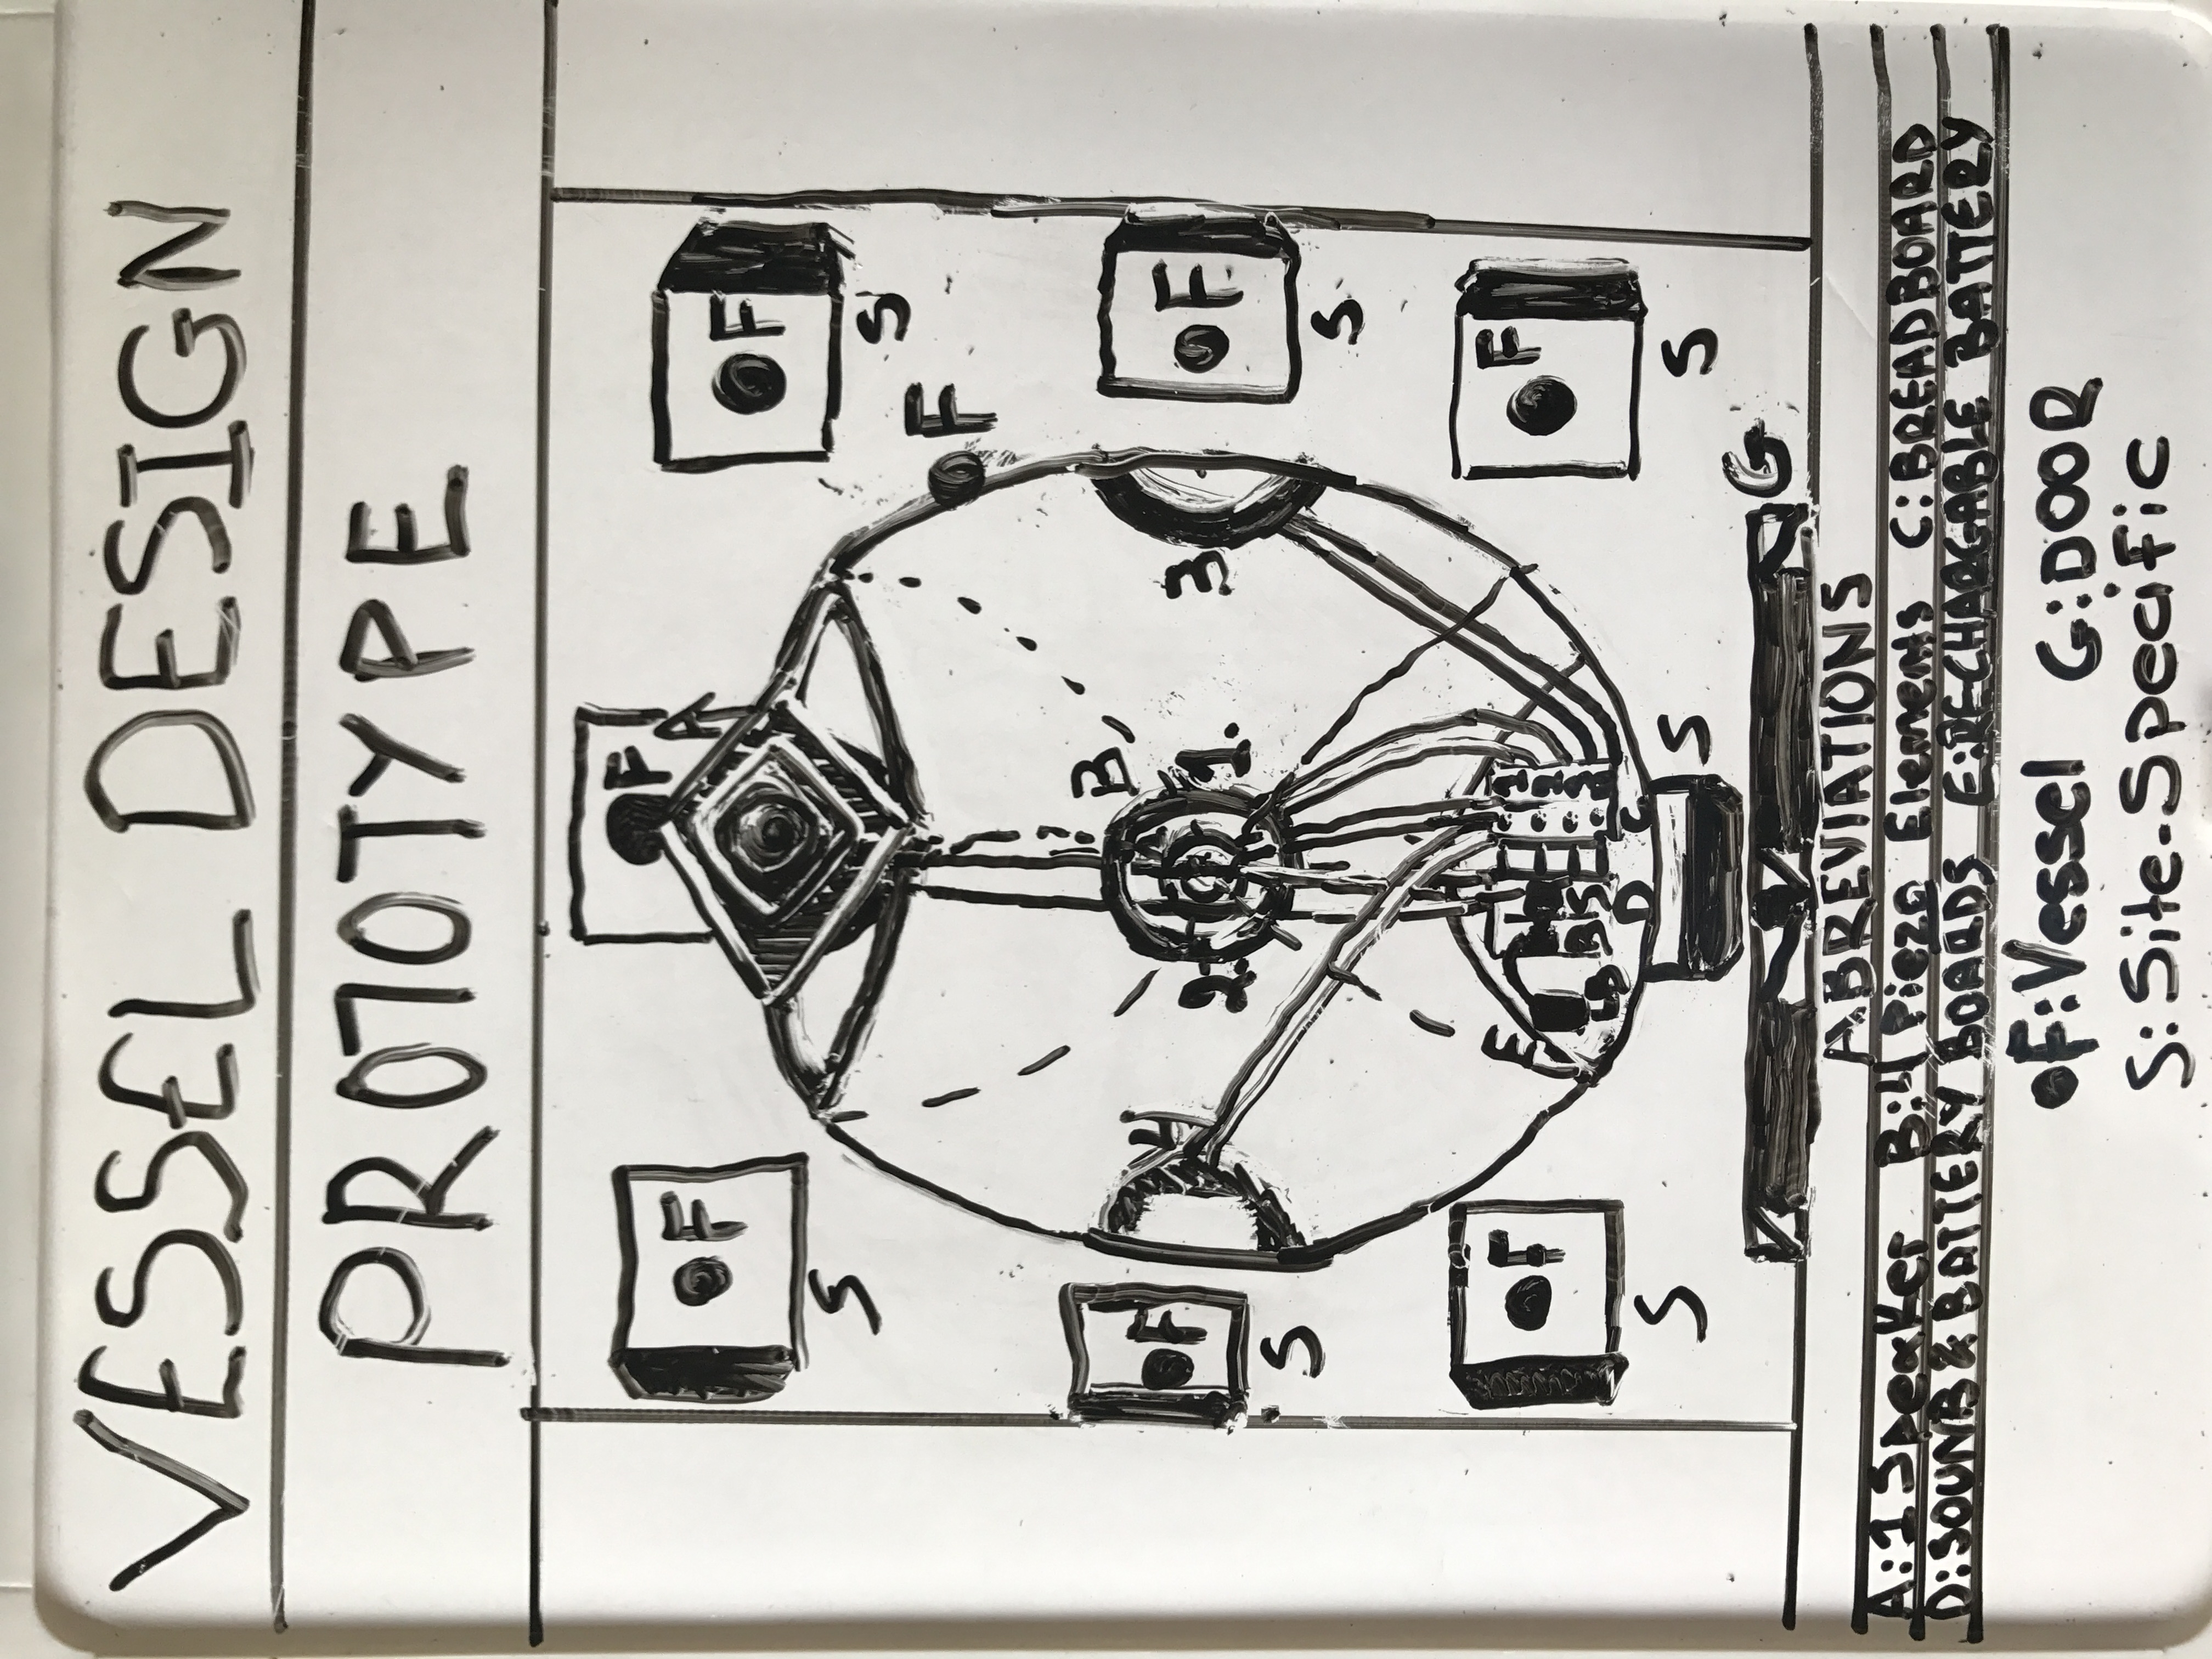 VESSEL DESIGN
PROTOTYPE
F
F
A
F
S
S
F
B
4
F
F
2.
1.
3
S
S
F
F
E
1
2
3
B S
D
C
S
S
S
G
ABREVIATIONS
A:1 Speaker B:4 Piezo Elements C:BREADBOARD
D:SOUND & BATTERY BOARDS E:RECHARGABLE BATTERY
F:Vessel G:DOOR
S:Site-Specific